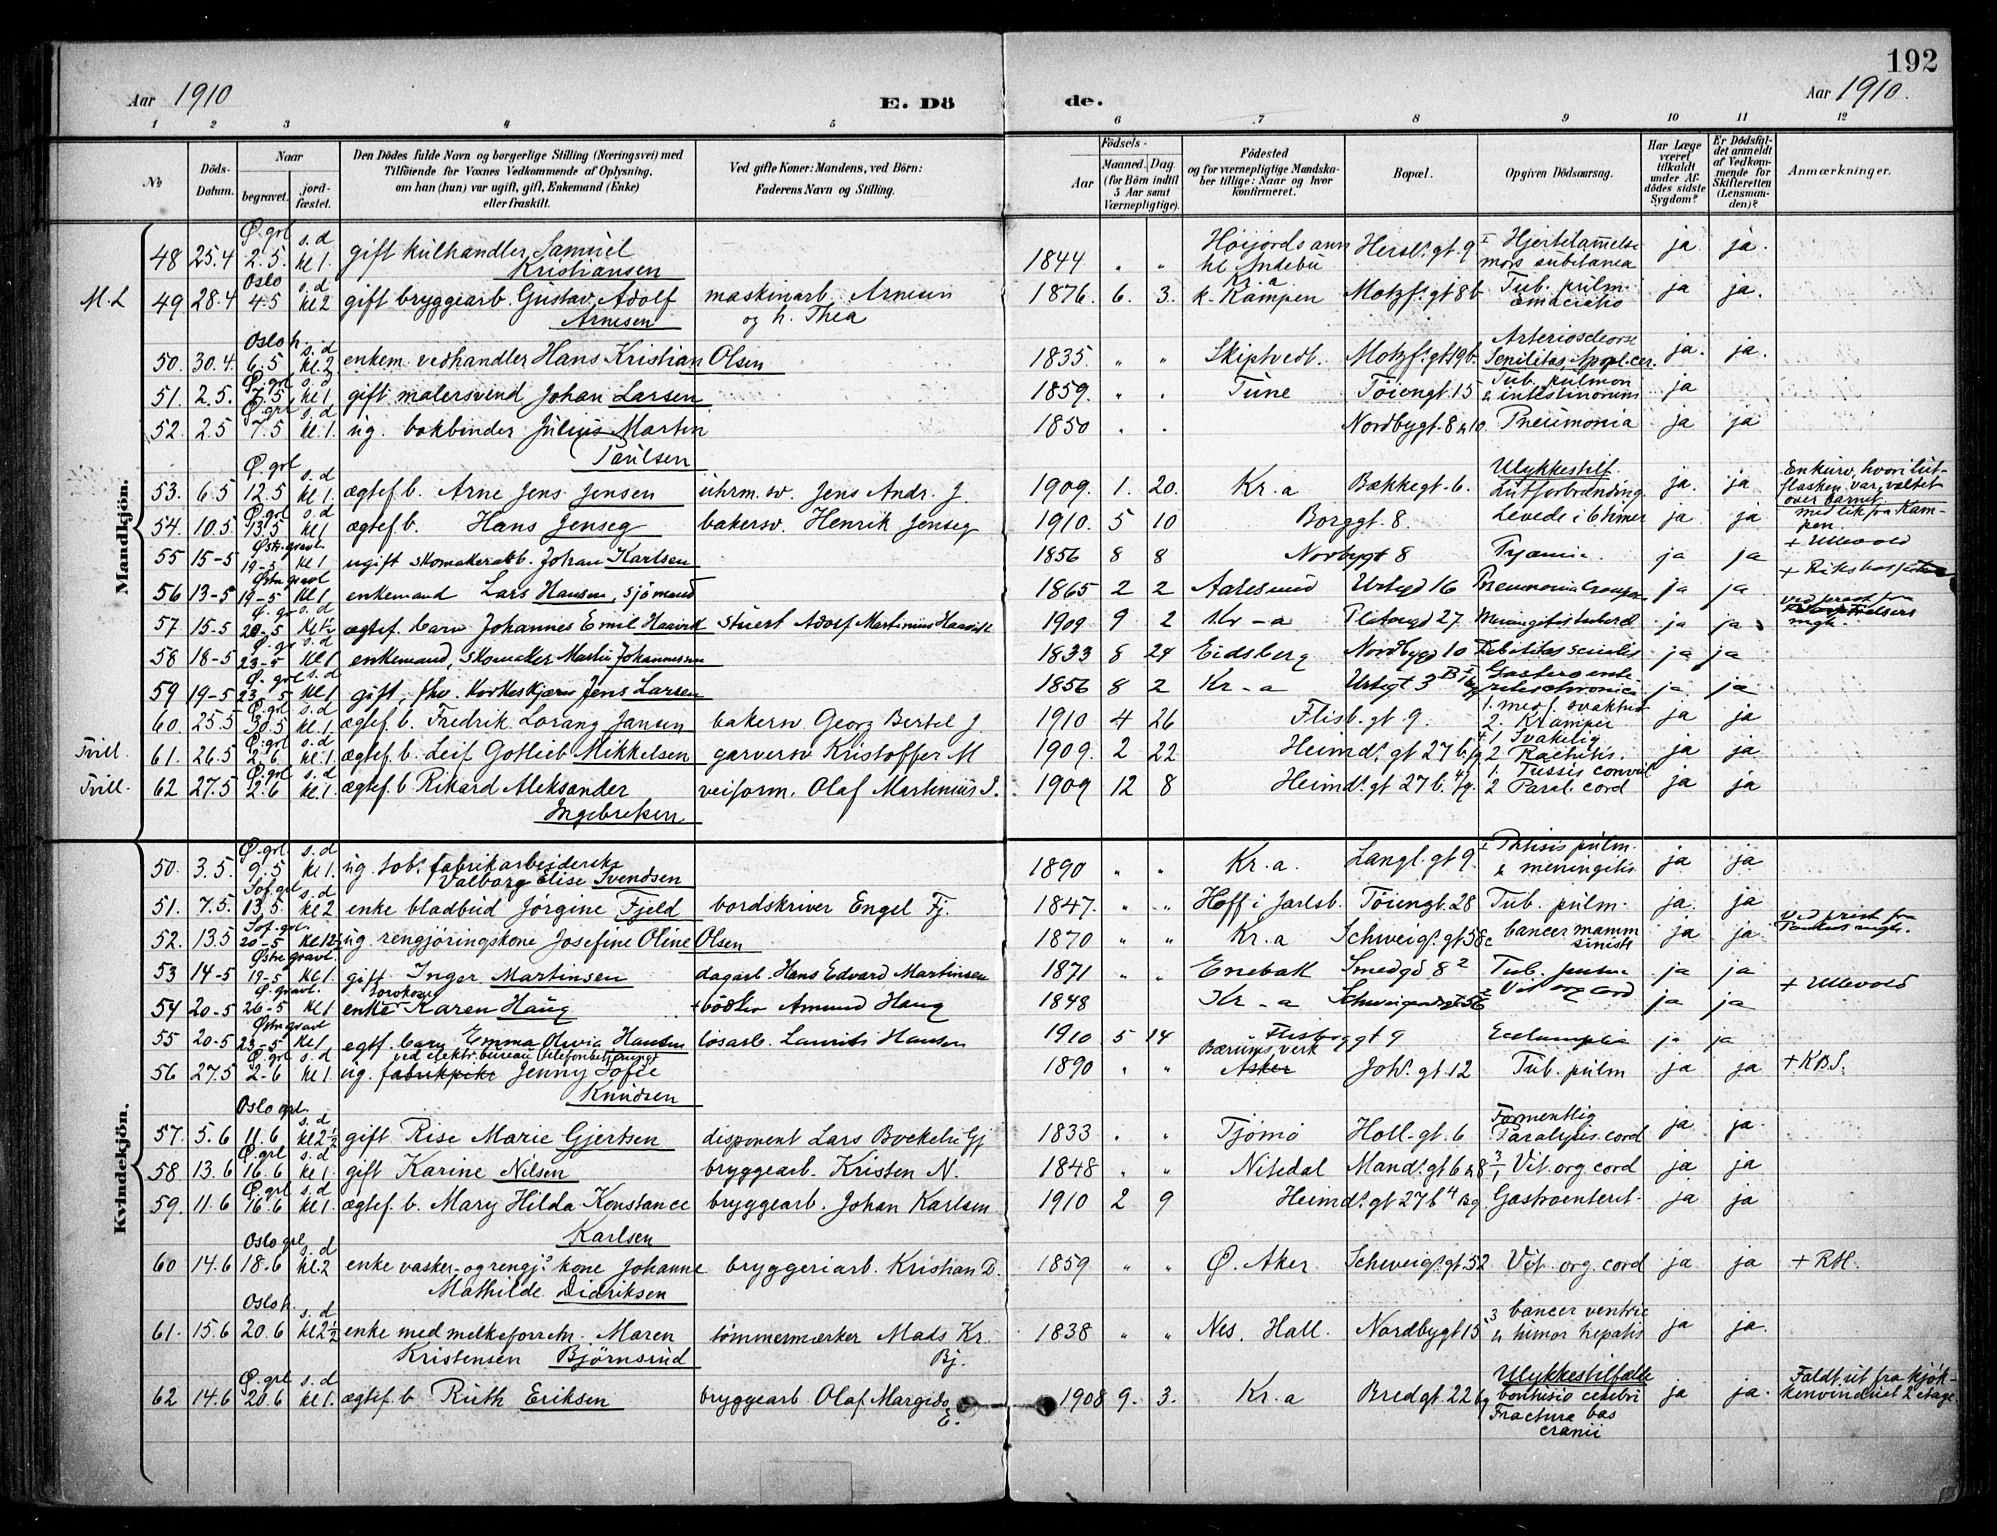 192
Aar 1910
E. Dö
de.
Aar 1910.
1 2 3 4 5 6 7 8 9 10 11 12
№
Döds-Datum.
Naar
begravet.
jord-fæstet.
Den Dödes fulde Navn og borgerlige Stilling (Næringsvei) med
Tilföiende for Voxnes Vedkommende af Oplysning,
om han (hun) var ugift, gift, Enkemand (Enke)
eller fraskilt.
Ved gifte Koner: Mandens, ved Börn:
Faderens Navn og Stilling.
Födsels-
Aar
Maaned. Dag.
(for Börn indtil
5 Aar samt
Værnepligtige).
Födested
og for værnepligtige Mandska-
ber tillige: Naar og hvor
konfirmeret.
Bopæl.
Opgiven Dödsaarsag.
Har Læge
været
tilkaldt
under Af-
dödes sidste
Sygdom?
Er Dödsfal-
det anmeldt
af Vedkom-
mende for
Skifteretten
(Lensman-
den)?
Anmærkninger.
Mandkjön.
Ø. grl s. d Høijords ann Hjertelammelse
48 25.4 2.5. kl 1. gift kulhandler Samuel 1844 " " hl. Andebu Hersl. gt. 9 mors subitanea ja ja.
Kristiansen
Oslo s. d Kr. a Tub. pulm.
M. L 49 28.4 4.5 kl 2 gift bryggearb. Gustav Adolf maskinarb. Arnesen 1876. 6. 3. k. Kampen Motzf. gt 8b emaciatio ja ja.
Arnesen og h. Thea
Oslo h. s. d Arteriosclerose
50. 30.4 6.5 kl. 2 enkem. vedhandler Hans Kristian Olsen 1835 " " Skiptvedt. Motzf. gt 19b. Senilitas, Apopl. cer. ja. ja.
Ø. grl s. d Tub. pulmon
51. 2.5. 7.5 kl 1 gift malersvend Johan Larsen 1859. " . Tune Tøiengt. 15 & intestinorum ja
Ø. grl s. d
52. 2.5 7.5 kl. 1. ug. bokbinder Julius Martin 1850 . . Nordbygt. 8 Pneumonia ja ja
Paulsen
Ø. grl s. d Ulykkestilf. En kurv, hvori lut-
53. 6.5 12.5 kl 1. ægtef. b. Arne Jens Jensen uhrm. sv. Jens Andr. J. 1909. 1. 20. Kr. a Bækkegt. 6. Lutforbrænding ja. ja. flasken var, væltet
over barnet.
Ø. grl s. d
54. 10.5 13.5 kl 1 ægtef. b. Hans Jenseg bakersv. Henrik Jenseg 1910. 5 10 Borggt. 8. Levede i 6 timer ja ja med lik fra Kam-
pen.
Østr. gravl.
55 15-5 19-5 kl 1 ugift skomakerarb. Johan Karlsen 1856 8 8 Norbygt 8 Pyæmie. ja ja + Ullevold
Østre gravl
56 13-5 19-5 kl 1 enkemand Lars Hansen, sjömand 1865 2 2 Aalesund Urtegd 16 Pneumonia ja ja
Ø. gr s. d
57. 15.5 20-5 ægtef. barn Johannes Emil Haavik stuert Adolf Martinius Haavik 1909 9 2 Kr-a Platougd 27 ja ja ved prest fra
mgh.
58 18-5 23-5 kl 1 enkemand, skomaker Martin Johannessen 1833 8 24 Eidsberg Nordbygd 10 Debilitas senilis ja ja
Ø. grl s. d
59 19-5 23-5 kl 1 gift, fhv. Korkeskjærer Jens Larsen 1856 8 2 Kr-a Urtegt 3 ja ja
Ø. grl s. d 1. medf. svakhed
60. 25.5 30.5 kl 1. ægtef. b. Fredrik Lorang Jansen bakersv Georg Bertel J. 1910 4 26 Flisb. gt 9. 2. Kramper ja ja
Ø. grl s. d 1 Svakelig
Tvill. 61. 26.5 2.6 kl. 1 ægtef. b. Leif Gotlieb Mikkelsen garversv Kristoffer M 1909. 2 22 Heimd. gt 27 b. 2 Rachitis. ja ja
Ø. grl s. d 1. Tussis convul
Tvill. 62 27.5 2.6 kl 1. ægtef. b Rikard Aleksander veiform. Olaf Martinius I. 1909 12 8 Heimd. gt 27 b. 2 Paral. cord ja ja
Ingebretsen
Kvindekjön.
Ø. grl s. d Phtisis pulm.
50. 3.5. 9.5 kl 1. ug. tob. fabrikarbeiderske 1890 " " Kr. a. Langl. gt 9. & meningitis ja ja
Valborg Elise Svendsen
Sof. grl s. d
51. 7.5. 13.5. kl 2 enke bladbud Jörgine Fjeld bordskriver Engel Fj. 1847. " " Hoff i Jarlsb. Tøiengt. 28 Tub. pulm. ja. ja
Sof. grl. ved prest fra
52. 13.5 20-5 kl 12½ ug. rengjöringskone Josefine Oline Olsen 1870 " " Kr. a Schweig. gt 58c Cancer mamm ja ja. Paulus mgh.
sinistr
Østre gravl.
53 14-5 19-5 kl 1 gift Inger Martinsen dagarb. Hans Edvard Martinsen 1871 " " Enebak Smedgd 8² Tub. pulm ja ja + Ullevold
Ø. gravl.
54 20-5 26-5 kl 1 enke Karen Haug + bödker Amund Haug 1848 Kr-a Schweigaardsgt 56 Vit org cord ja ja
Østre gravl
55 20-5 23-5 kl 1 egtf. barn Emma Olivia Hansen lösarb. Laurits Hansen 1910 5 14 Flisbyggt 9 Eclampsia ja ja
Ø. grl s. d ved elektr. bureau Bærums verk
56 27.5 2.6 kl 1 ug. fabrikpike Jenny Sofie 1890 " " Asker Joh. gt. 12 Tub. pulm ja ja + K.B.S.
Knudsen
Oslo grl. s. d Formentlig
57. 5.6 11.6 kl 2½ gift Rise Marie Gjertsen disponent Lars Bockelie Gj 1833 " " Tjömö Holl. gt. 6 Paralysis cord ja ja.
Ø. grl s. d
58 13.6 16.6 kl 1. gift Karine Nilsen bryggearb. Kristen N. 1848 " " Nitedal Mand. gt 6 Vit. org. cord ja ja
Ø. grl s. d
59. 11.6 16.6 kl 1. ægtef. b. Mary Hilda Konstance bryggearb. Johan Karlsen 1910 2 9 Heimd. gt 27 b Gastroenterit. ja ja
Karlsen
Oslo grl s. d
60 14.6 18.6 kl. 2 enke vasker- og rengj. kone Johanne bryggeriarb. Kristian D. 1859 " " Ø. Aker Schweig. gt. 52 Vit. org. cord ja ja + RH.
Mathilde Didriksen
Oslo h. s. d Cancer ventric
61. 15.6 20.6 kl 2½ enke med melkeforretn. Maren tømmermærker Mads Kr. 1838 " " Nes, Hall. Nordbygt 15 & tumor hepatis ja ja.
Kristensen Björnsrud Bj.
Ø. grl s. d Ulykkestilfælde Faldt ut fra kjök-
62 14.6 20.6 kl 1. ægtef. b Ruth Eriksen bryggearb Olaf Margido 1908 9. 3. Kr. a Bredgt. 22 Contusio cerebri ja ja. kenvinduet 2 etage
E. Fractura bas
cranii